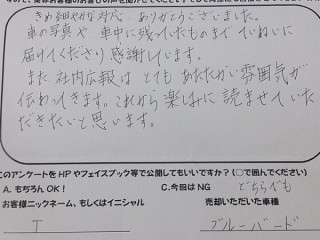 きめ細やかな対応 ありがとうございました。
車の写真や 車中に残っていたものまで ていねいに
届けてくださり 感謝しています。
また 社内広報は とても あたたかい 雰囲気が
伝わってきます。これから 楽しみに 読ませていた
だきたいと 思います。
このアンケートを HP やフェイスブック等で公開してもいいですか?(○で囲んでください)
A. もちろん OK! C.今回は NG どちらでも
お客様ニックネーム、もしくはイニシャル 売却いただいた車種
T ブルーバード